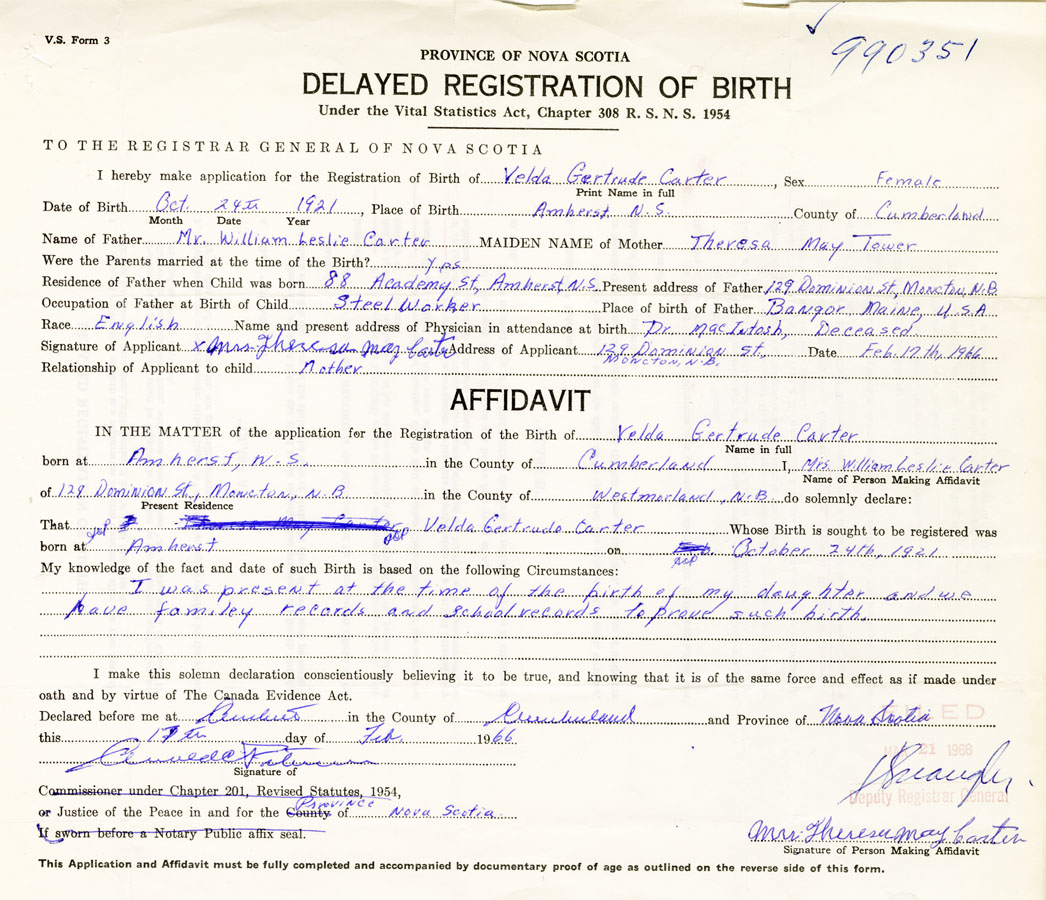 V.S. Form 3
990351
PROVINCE OF NOVA SCOTIA
DELAYED REGISTRATION OF BIRTH
Under the Vital Statistics Act, Chapter 308 R. S. N. S. 1954
TO THE REGISTRAR GENERAL OF NOVA SCOTIA
I hereby make application for the Registration of Birth of Velda Gertrude Carter, Sex Female
Print Name in full
Date of Birth Oct. 24th 1921, Place of Birth Amherst N.S. County of Cumberland
Month Date Year
Name of Father Mr. William Leslie Carter MAIDEN NAME of Mother Theresa May Tower
Were the Parents married at the time of the Birth? Yes
Residence of Father when Child was born 88 Academy St, Amherst, N.S. Present address of Father 129 Dominion St, Moncton, N.B.
Occupation of Father at Birth of Child Steel Worker Place of birth of Father Bangor Maine, U.S.A
Race English Name and present address of Physician in attendance at birth Dr. MacIntosh, Deceased
Signature of Applicant x Mrs Theresa May Carter Address of Applicant 129 Dominion St., Date Feb. 17th, 1966
Moncton, N.B.
Relationship of Applicant to child Mother
AFFIDAVIT
IN THE MATTER of the application for the Registration of the Birth of Velda Gertrude Carter
Name in full
born at Amherst, N.S. in the County of Cumberland I, Mrs. William Leslie Carter
Name of Person Making Affidavit
of 129 Dominion St., Moncton, N.B in the County of Westmorland, N.B do solemnly declare:
Present Residence
That Velda Gertrude Carter Whose Birth is sought to be registered was
born at Amherst on October 24th, 1921
My knowledge of the fact and date of such Birth is based on the following Circumstances:
I was present at the time of the birth of my daughter and we
have familey records and school records to prove such birth.
I make this solemn declaration conscientiously believing it to be true, and knowing that it is of the same force and effect as if made under
oath and by virtue of The Canada Evidence Act.
Declared before me at Amherst in the County of Cumberland and Province of Nova Scotia
this 17th day of Feb. 1966
Signature of
Commissioner under Chapter 201, Revised Statutes, 1954,
or Justice of the Peace in and for the County Province of Nova Scotia
If sworn before a Notary Public affix seal.
FILED
MAR 21 1966
Deputy Registrar General
Mrs Theresa May Carter
Signature of Person Making Affidavit
This Application and Affidavit must be fully completed and accompanied by documentary proof of age as outlined on the reverse side of this form.